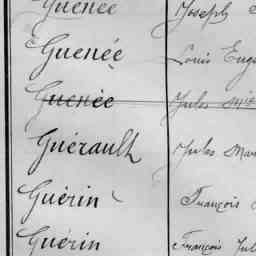 Guenée Joseph
Guenée Louis Eug
Guenée Jules
Guérault Jules Mar
Guérin François
Guérin François Jul